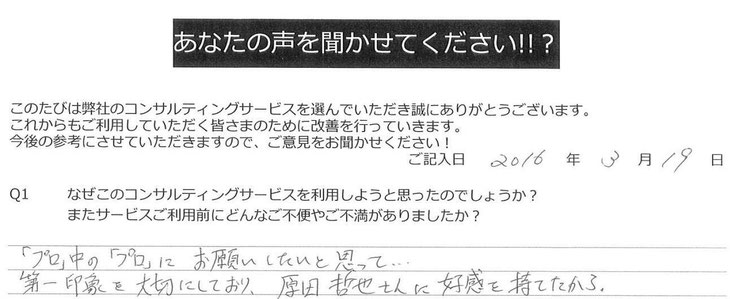 あなたの声を聞かせてください!!?
このたびは弊社のコンサルティングサービスを選んでいただき誠にありがとうございます。
これからもご利用していただく皆さまのために改善を行っていきます。
今後の参考にさせていただきますので、ご意見をお聞かせください!
ご記入日 2016 年 3 月 19 日
Q1 なぜこのコンサルティングサービスを利用しようと思ったのでしょうか?
またサービスご利用前にどんなご不便やご不満がありましたか?
「プロ」中の「プロ」に お願いしたいと思って…
第一印象を大切にしており、原田哲也さんに好感を持てたから。